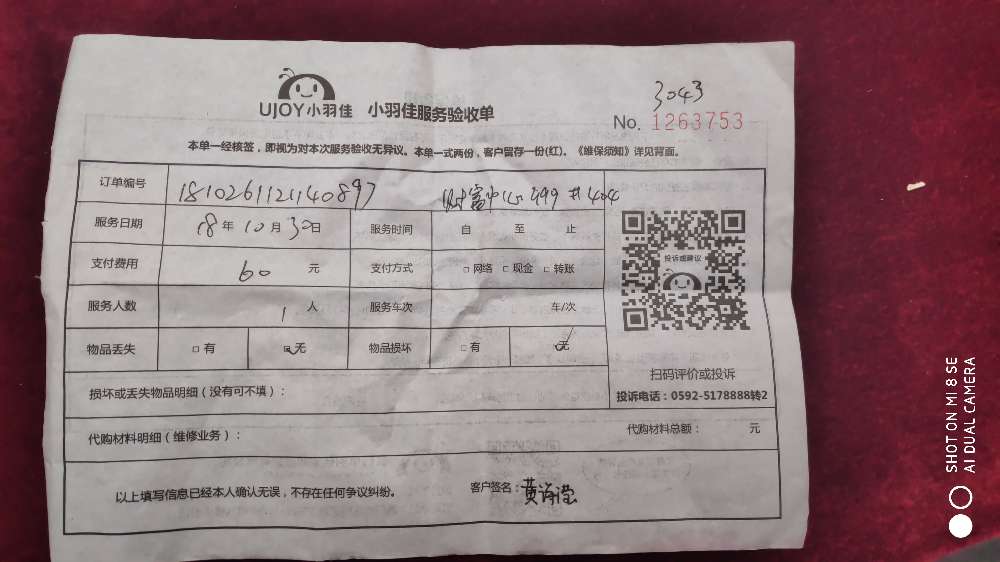 3043
UJOY小羽佳 小羽佳服务验收单
No. 1263753
本单一经核签，即视为对本次服务验收无异议。本单一式两份，客户留存一份(红)。《维保须知》详见背面。
订单编号 1810261121140897 财富中心499#404
服务日期 18年10月30日 服务时间 自 至 止
支付费用 60 元 支付方式 □网络 □现金 □转账
服务人数 1 人 服务车次 车/次
物品丢失 □有 ☑无 物品损坏 □有 ☑无
投诉或建议
扫码评价或投诉
投诉电话：0592-5178888转2
损坏或丢失物品明细（没有可不填）：
代购材料明细（维修业务）： 代购材料总额： 元
以上填写信息已经本人确认无误，不存在任何争议纠纷。 客户签名：黄
SHOT ON MI 8 SE
AI DUAL CAMERA